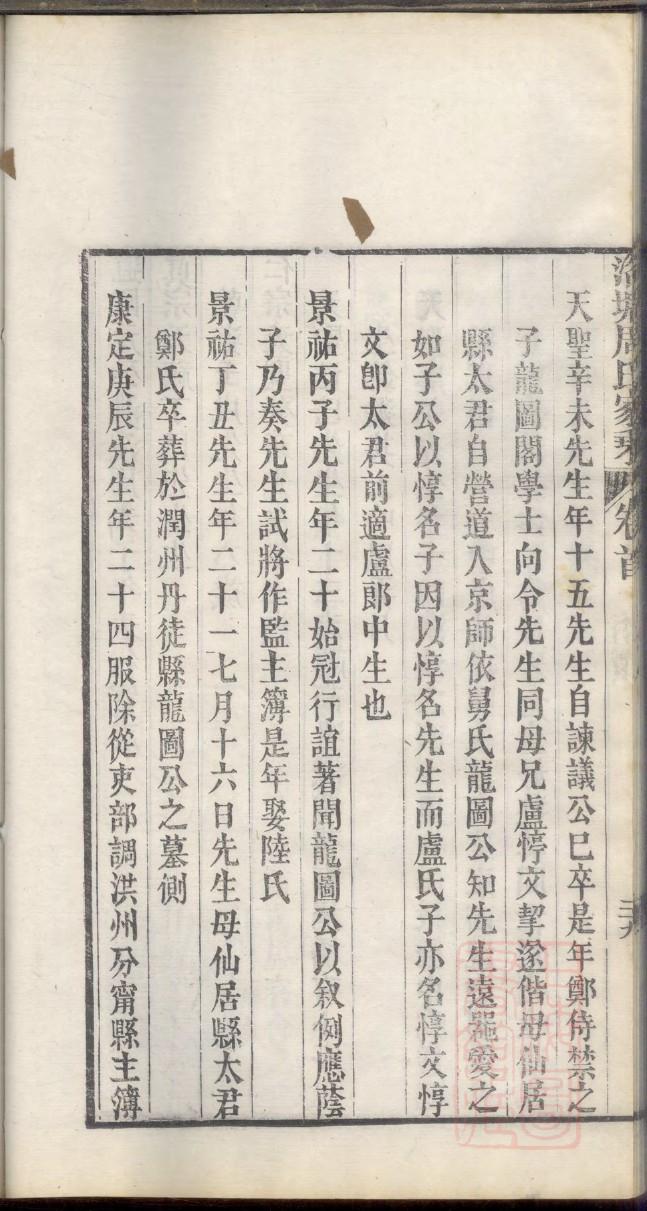 天聖辛未先生年十五先生自諫議公已卒是年鄭侍禁之
子龍圖閣學士向令先生同母兄盧惇文挈遂偕母仙居
縣太君自營道入京師依舅氏龍圖公知先生遠器愛之
如子公以惇名子因以惇名先生而盧氏子亦名惇文惇
文卽太君前適盧郞中生也
景祐丙子先生年二十始冠行誼著聞龍圖公以敘例應蔭
子乃奏先生試將作監主簿是年娶陸氏
景祐丁丑先生年二十一七月十六日先生母仙居縣太君
鄭氏卒葬於潤州丹徒縣龍圖公之墓側
康定庚辰先生年二十四服除從吏部調洪州分甯縣主簿